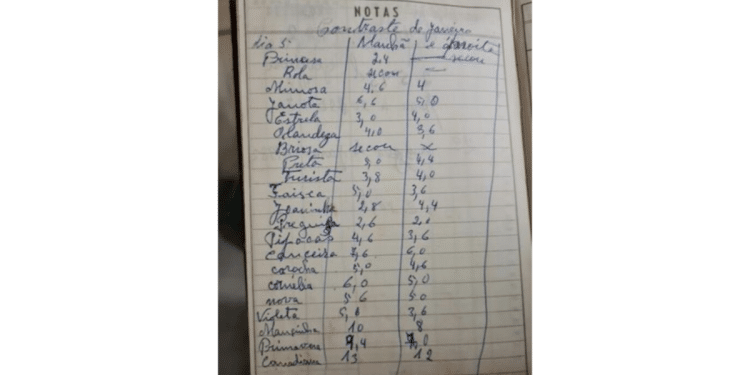 NOTAS
Contraste de Janeiro
dia 5 Manhã e á noite
Princesa 2.4 — secou
Rola secou —
Mimosa 4,6 4
Janota 6,6 5,0
Estrela 3,0 4,0
Olandeza 4,0 3,6
Briosa secou x
Preta 5,0 4,4
Turista 3,8 4,0
Faisca 5,0 3,6
Joaninha 2,8 4,4
Preguiça 2,6 2.0
Pipocas 4,6 3,6
Conceiza 7,6 6,0
corocha 5,0 4,6
cornélia 6,0 5,0
nova 5 6 5 0
Violeta 5,6 3,6
Mansinha 10 8
Primavera 9,4 7,0
Canadiana 13 12